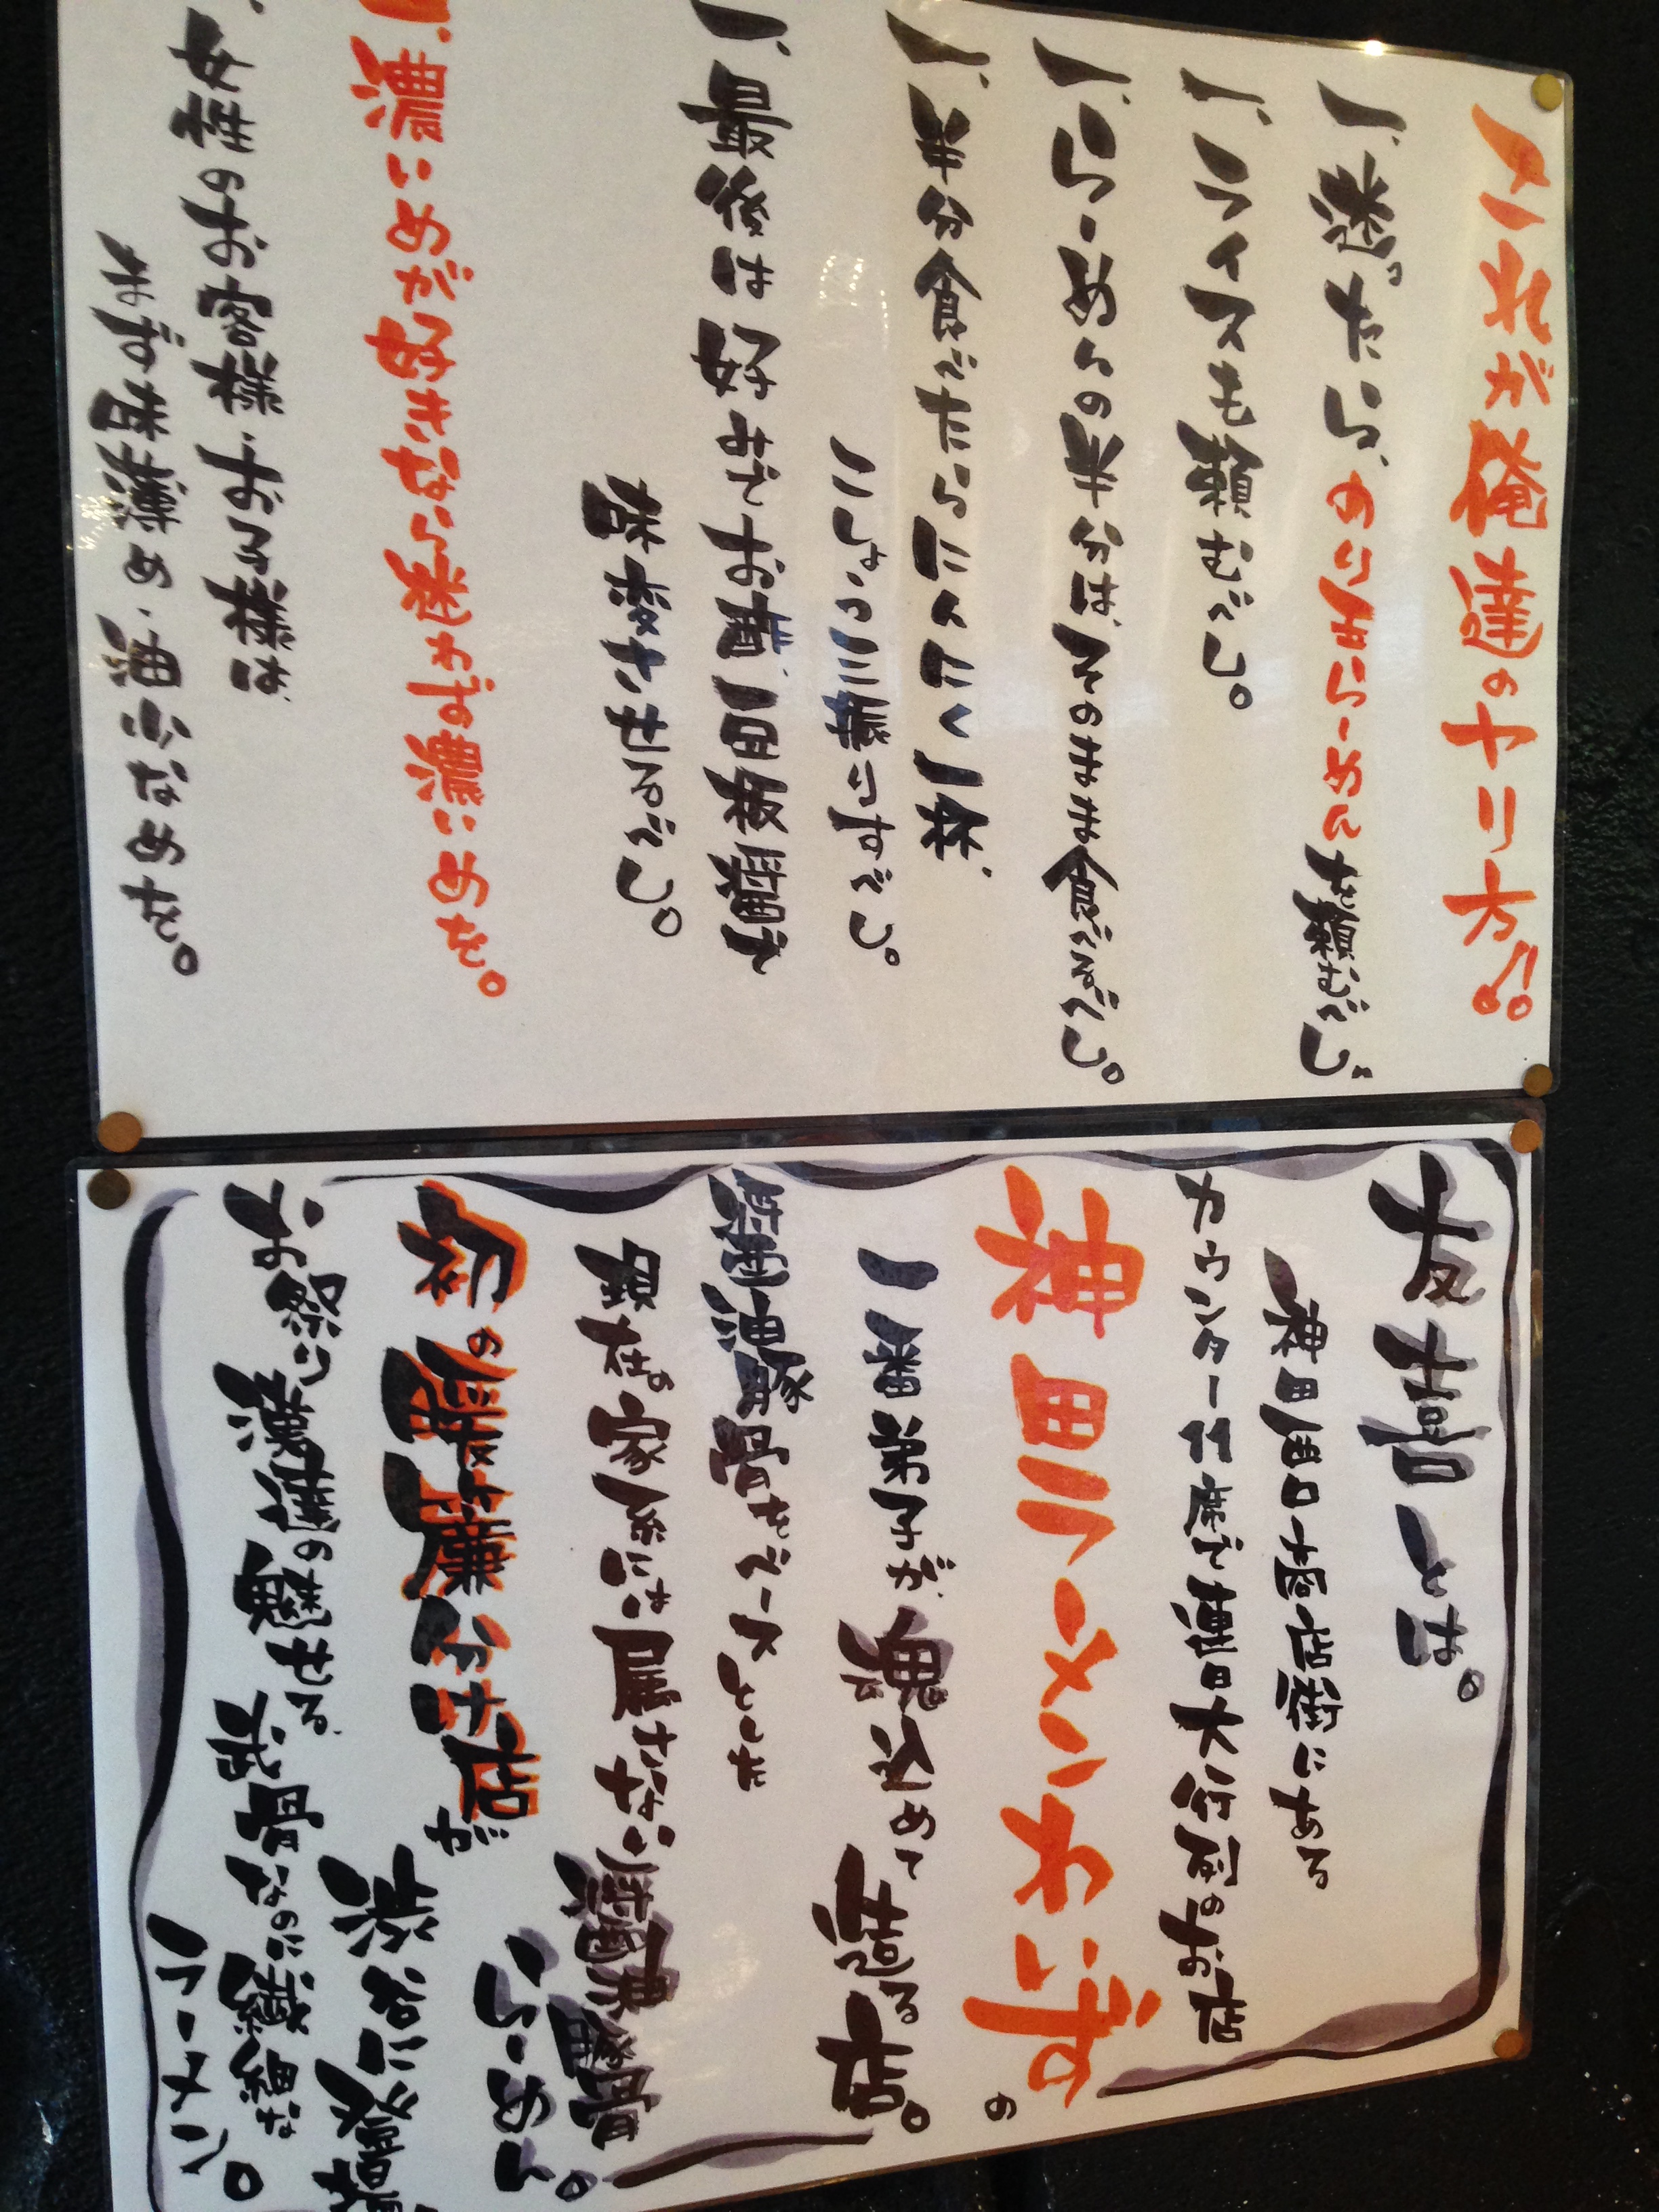 これが俺達のヤリ方!!
一、迷ったら、のり玉らーめんを頼むべし。
一、ライスも頼むべし。
一、らーめんの半分は、そのまま食べるべし。
一、半分食べたらにんにく一杯、
こしょう三振りすべし。
一、最後は好みでお酢、豆板醤で
味変させるべし。
濃いめが好きなら迷わず濃いめを。
女性のお客様・お子様は、
まず味薄め・油少なめを。
友喜とは。
神田西口商店街にある
カウンター11席で連日大行列のお店
神田ラーメンわいずの
一番弟子が、魂込めて
造る店。
醤油豚骨をベースとした
現在の家系には属さない濃厚豚骨
らーめん。
念願の暖簾分け店が
渋谷に
お祭り漢達の魅せる
濃骨なのに繊細な
ラーメン。